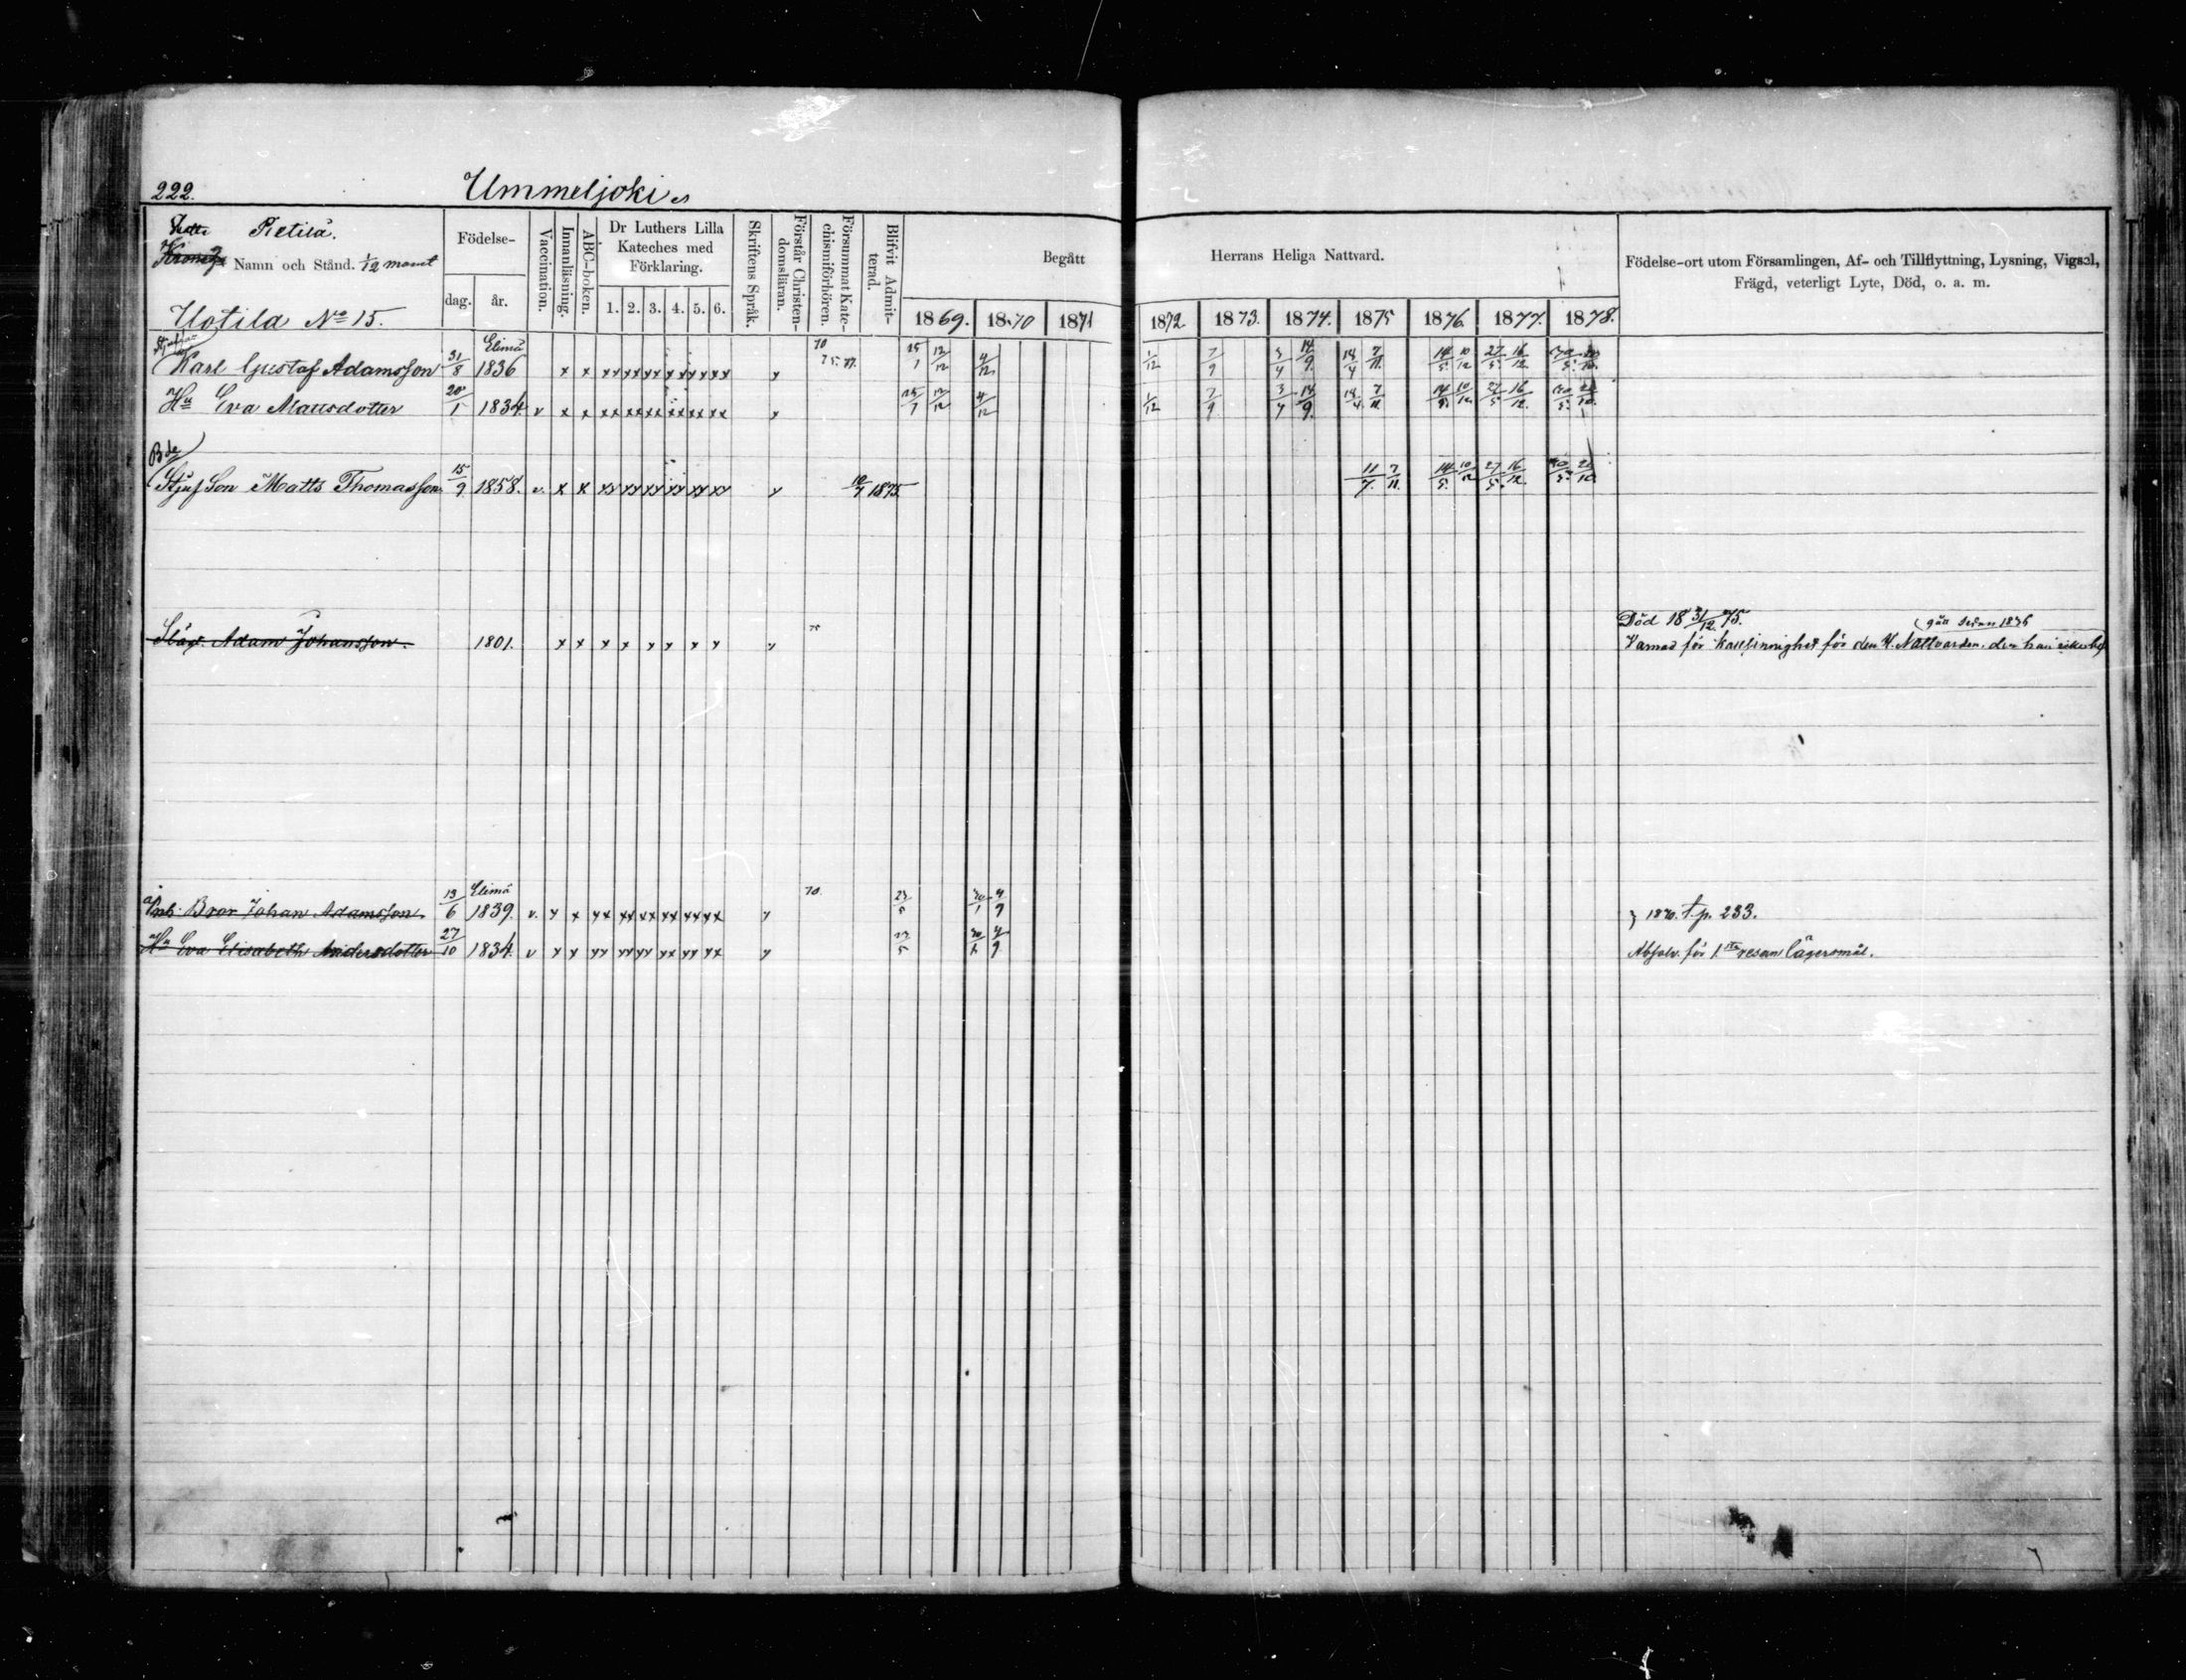 222. Ummeljoki
Skatte Pietilä.
Namn och Stånd. 1/12 mantl
Uotila No 15.
Födelse-
dag. år.
Vaccination.
Innanläsning.
ABC-boken.
Dr Luthers Lilla
Kateches med
Förklaring.
1. 2. 3. 4. 5. 6.
Skriftens Språk.
Förstår Christen-
domsläran.
Försummat Kate-
chismiförhören.
Blifvit Admit-
terad.
Begått Herrans Heliga Nattvard.
1869. 1870 1871 1872 1873. 1874. 1875 1876. 1877. 1878.
Födelse-ort utom Församlingen, Af- och Tillflyttning, Lysning, Vigsel,
Frägd, veterligt Lyte, Död, o. a. m.
Elimä
Karl Gustaf Adamsson 31/8 1836 x x xx xx xx xx xx xx y 70 75. 77. 25/1 12/12 4/12 1/12 7/9 3/4 14/9 18/4 7/11 14/5 10/12 27/5 16/12
Hu Eva Mattsdotter 20/1 1834 v x x xx xx xx xx xx xx y 25/1 12/12 4/12 1/12 7/9 3/4 14/9 18/4 7/11 14/5 10/12 27/5 16/12
Bde
Stjufson Matts Thomasson 15/9 1858. v. x x xx xx xx xx xx xx y 10/7 1875. 11/7 7/11 14/5 10/12 27/5 16/12
Död 18 31/12 75. gått sedan 1836
Adam Johansson. 1801. x x x x x x x x y 75 Varnad för kallsinnighet för den H. Nattvarden. den han icke
Elimä
Bror Johan Adamsson. 13/6 1839. v. y x yx xx xx xx xx xx y 70. 23/5 30/1 4/9 } 1870. t p. 233.
Hu Eva Elisabeth Andersdotter 27/10 1834. v y y yy yy yy yy yy xx y 23/5 30/1 4/9 Absolv. för 1.sta resan lägersmål.